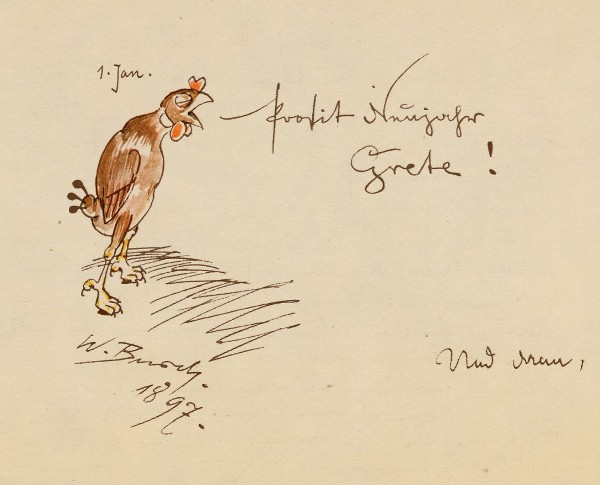 1. Jan.
Prosit Neujahr
Grete!
W. Busch.
1897.
Und